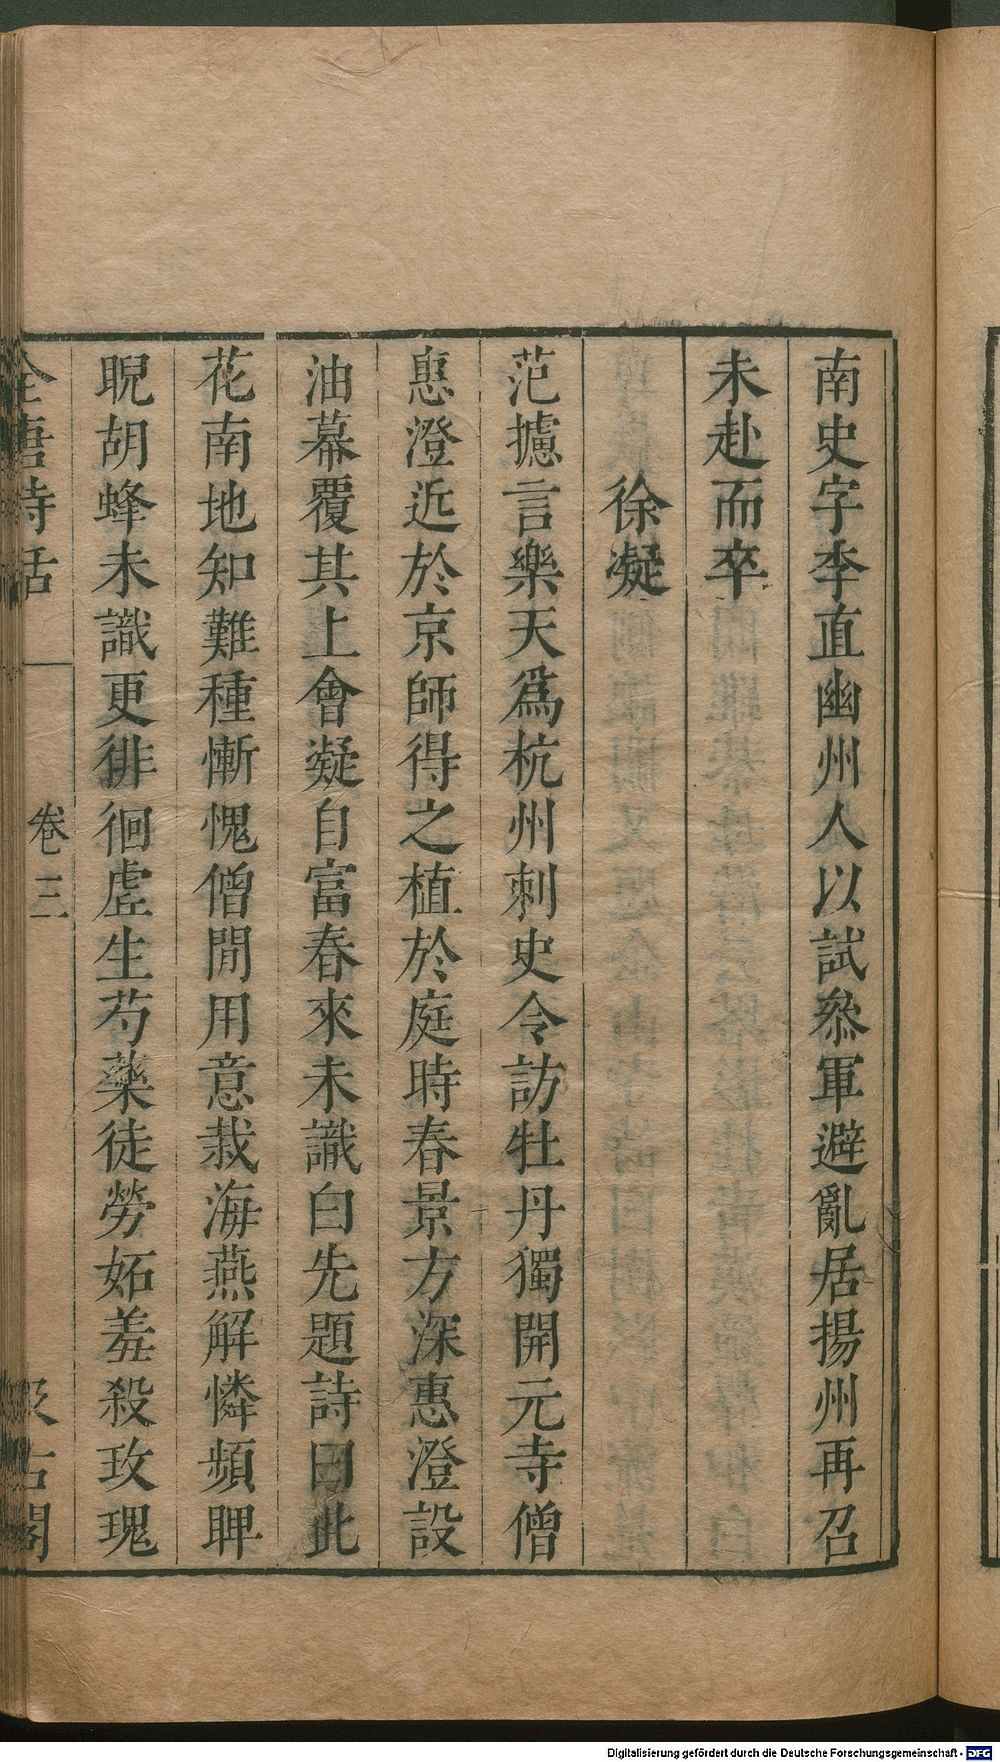 南史字李直幽州人以試叅軍避亂居揚州再召
未赴而卒
徐凝
范攄言樂天爲杭州刺史令訪牡丹獨開元寺僧
惠澄近於京師得之植於庭時春景方深惠澄設
油幕覆其上會凝自富春來未識白先題詩曰此
花南地知難種慚愧僧間用意栽海燕解憐頻睥
睨胡蜂未識更徘徊虛生芍藥徒勞妬羞殺玫瑰
全唐詩話
卷三
汲古閣
Digitalisierung gefördert durch die Deutsche Forschungsgemeinschaft - DFG